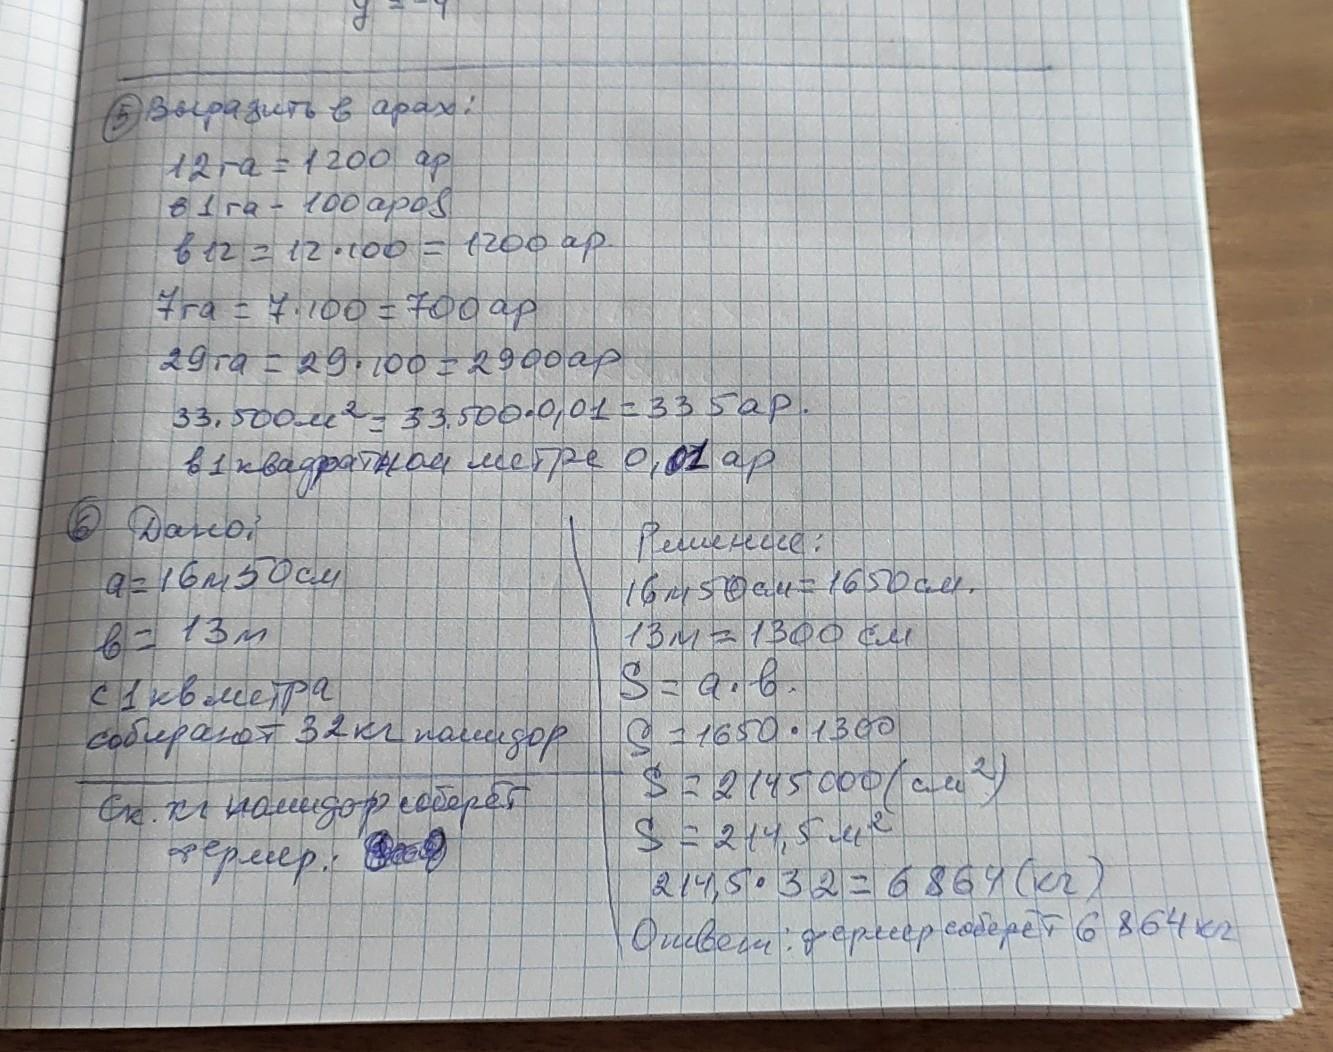 y = -4
5 Выразить в арах:
12 га = 1200 ар
в 1 га - 100 аров
в 12 = 12·100 = 1200 ар
7га = 7·100 = 700 ар
29га = 29·100 = 2900 ар
33.500м² = 33.500·0,01 = 335 ар.
в 1 квадратном метре 0,01 ар
6 Дано:
a = 16м 50см
в = 13м
с 1 кв метра
собирают 32 кг помидор
Ск. кг помидор соберёт
фермер:
Решение:
16м 50см = 1650 см.
13м = 1300 см
S = a·в.
S = 1650·1300
S = 2145000 (см²)
S = 214,5 м²
214,5·32 = 6 864 (кг)
Ответ: фермер соберёт 6 864 кг